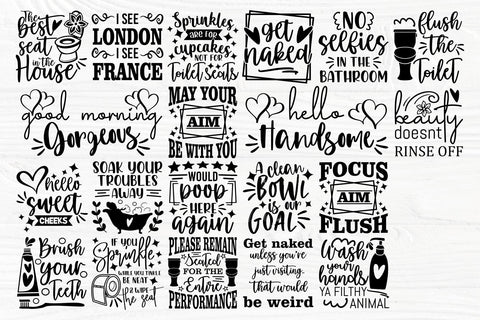 The
Best
seat
in the
House
I SEE
LONDON
I SEE
FRANCE
Sprinkles
ARE FOR
cupcakes
NOT FOR
Toilet Seats
get
naked
NO
selfies
IN THE
BATHROOM
flush
the
Toilet
good morning
Gorgeous
MAY YOUR
AIM
BE WITH YOU
hello
Handsome
beauty
doesnt
RINSE OFF
hello
sweet
CHEEKS
SOAK YOUR
TROUBLES
AWAY
WOULD
POOP
HERE
again
A clean
BOWL
is our
GOAL
FOCUS
AIM
FLUSH
Brush
your
Teeth
IF YOU
Sprinkle
WHILE YOU TINKLE
BE NEAT
& WIPE
the seat
PLEASE REMAIN
Seated
FOR THE
Entire
PERFORMANCE
Get naked
unless you're
just visiting.
that would
be weird
Wash
your
hands
YA FILTHY
ANIMAL